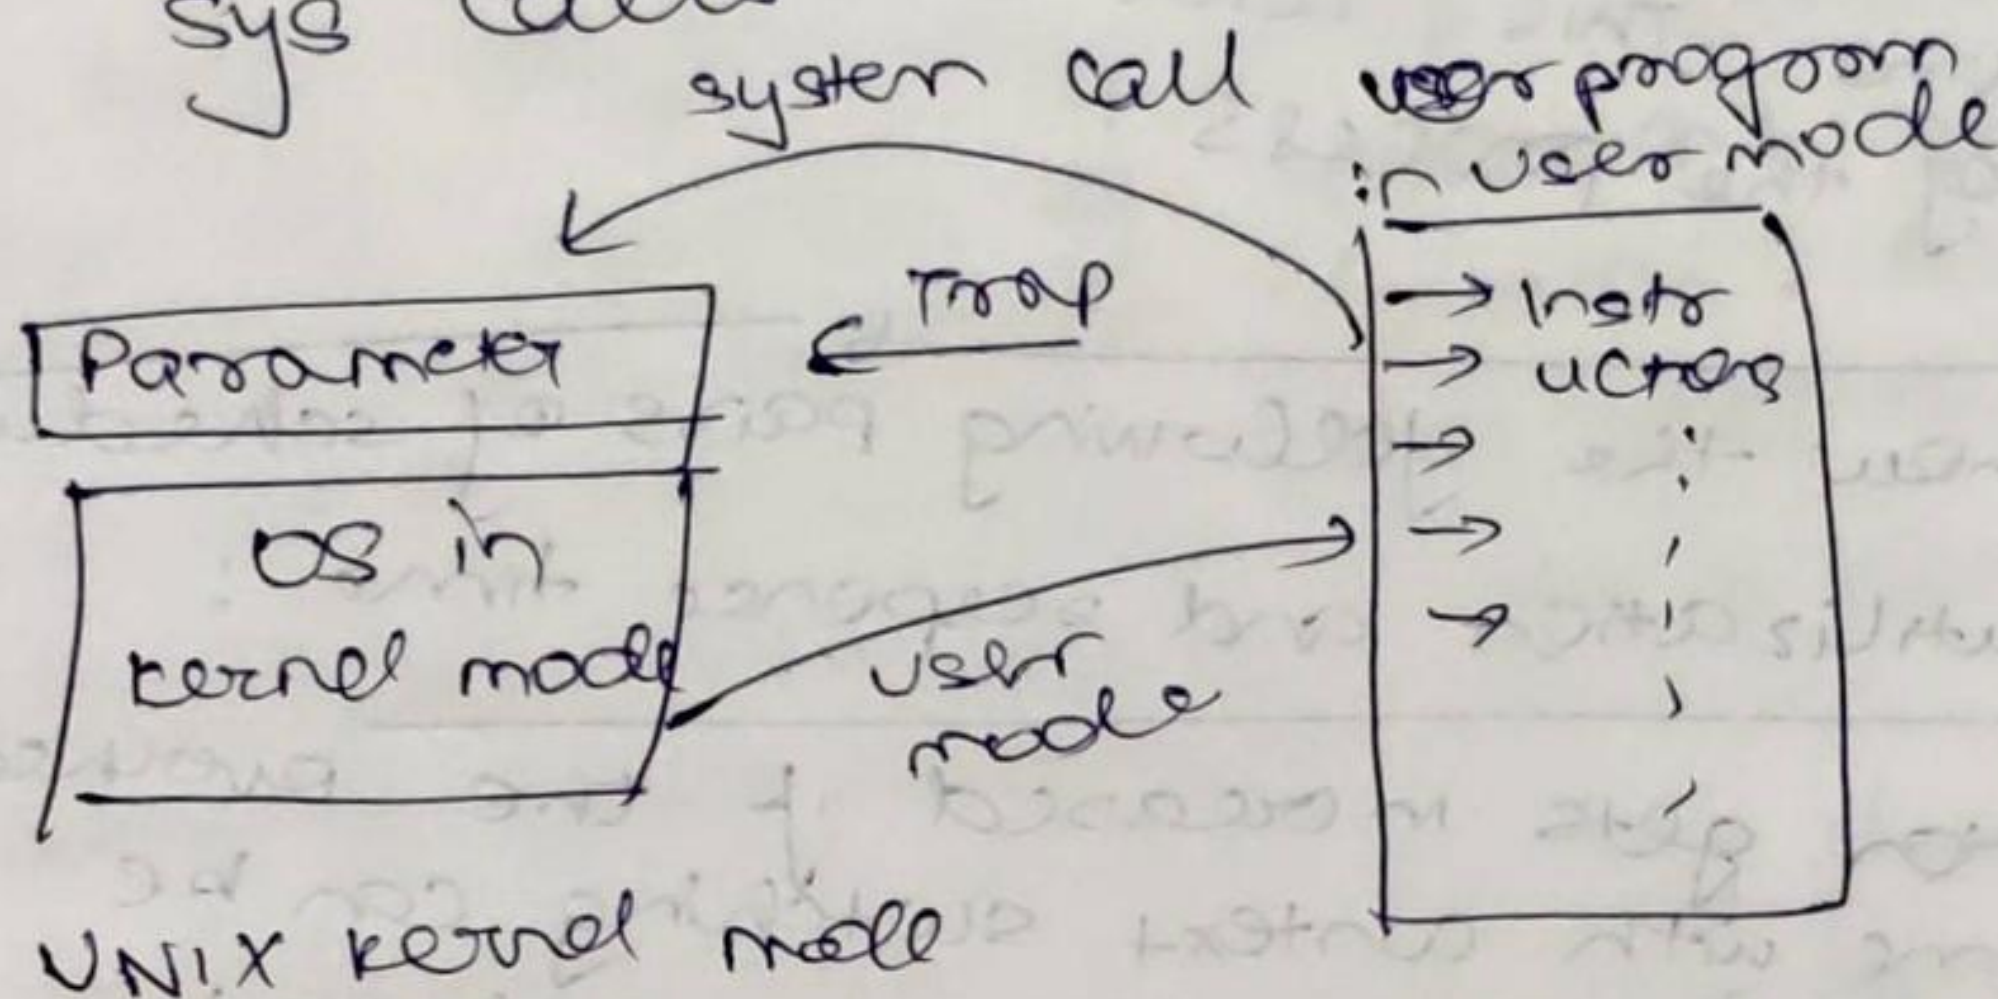 sys
system call
user program
in user mode
Trap
Instr
Parameter
OS in
kernel mode
user
mode
UNIX kernel mode